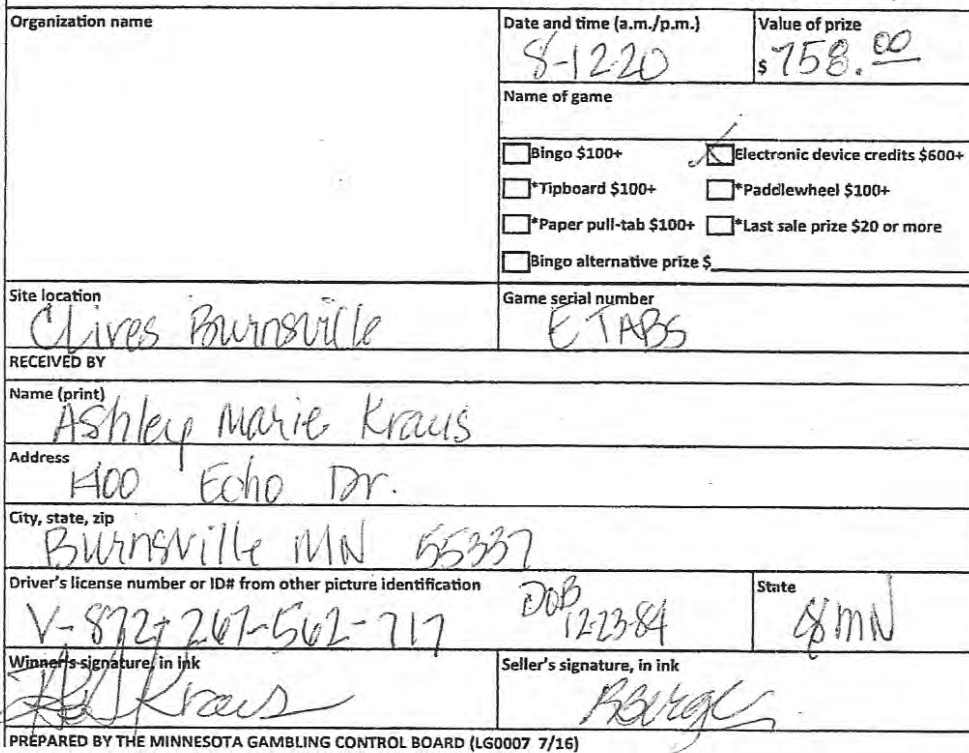 Organization name
Date and time (a.m./p.m.)
8-12-20
Value of prize
$ 758.00
Name of game
Bingo $100+
Electronic device credits $600+
*Tipboard $100+
*Paddlewheel $100+
*Paper pull-tab $100+
*Last sale prize $20 or more
Bingo alternative prize $
Site location
Clives Burnsville
Game serial number
E TABS
RECEIVED BY
Name (print)
Ashley Marie Kraus
Address
Echo Dr.
City, state, zip
Burnsville MN 55337
Driver's license number or ID# from other picture identification
V-872-267-562-717
DOB
12-23-84
State
MN
Winner's signature, in ink
Kraus
Seller's signature, in ink
PREPARED BY THE MINNESOTA GAMBLING CONTROL BOARD (LG0007 7/16)